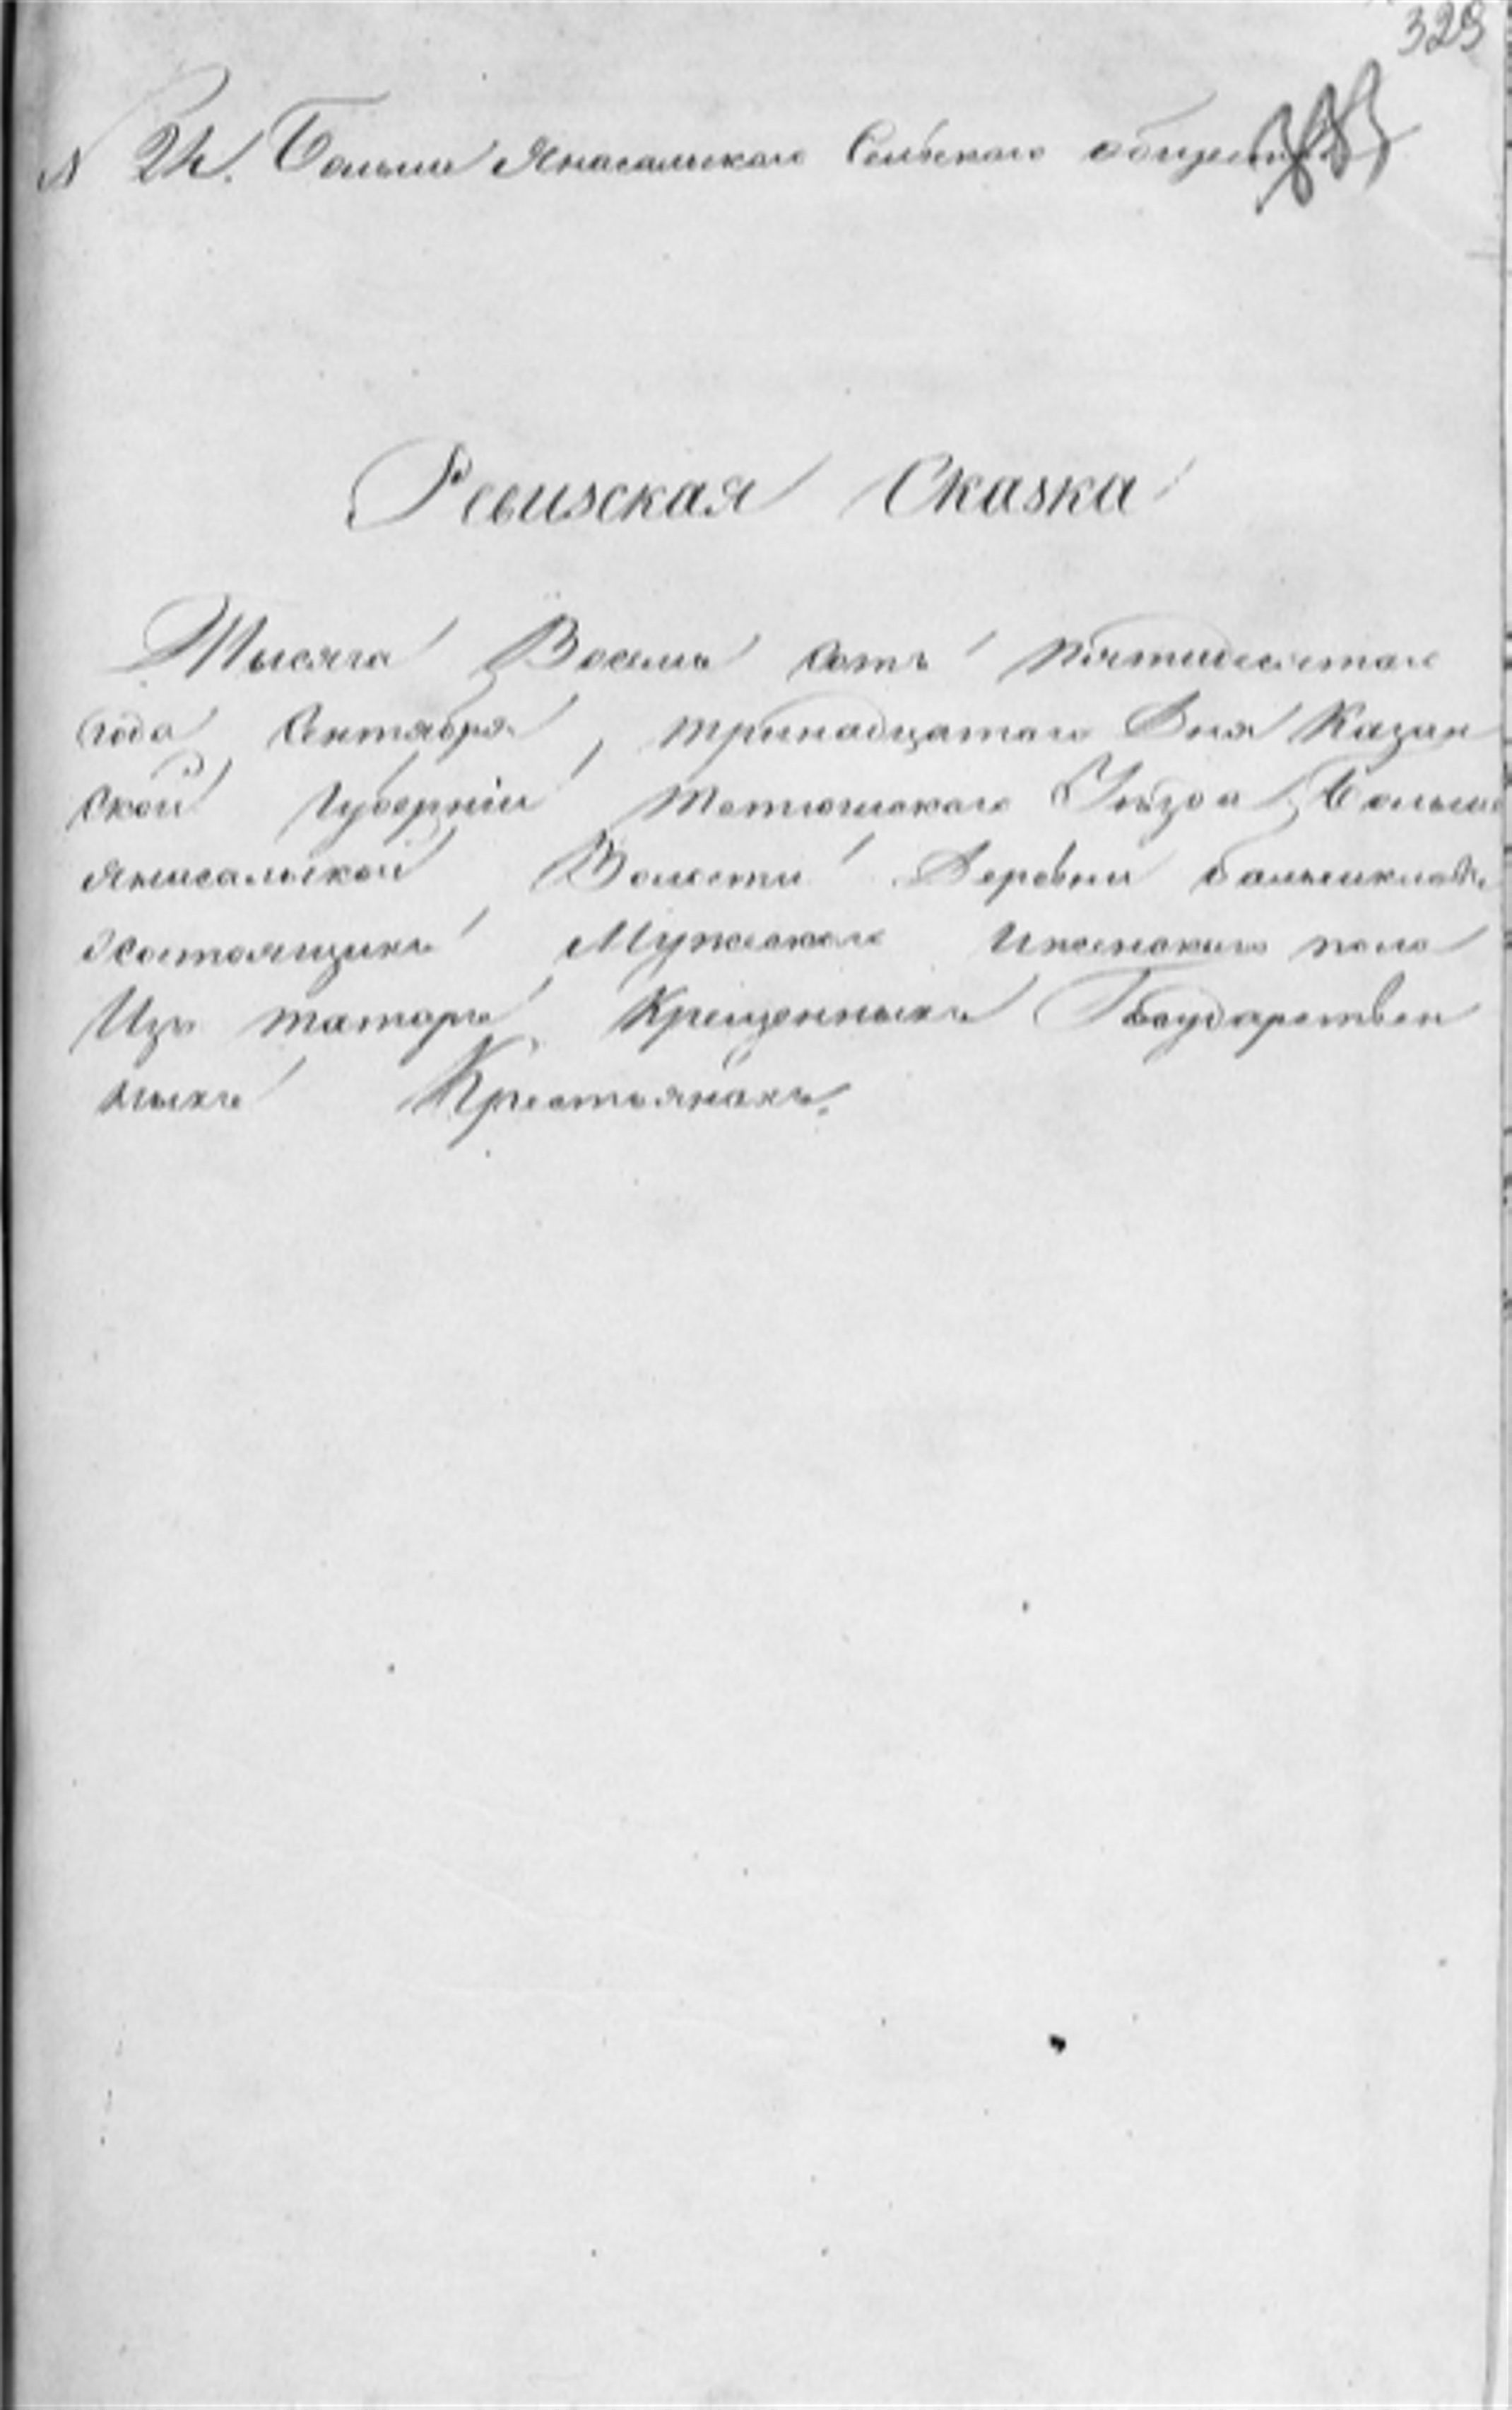 329
N 24. Больше Янасальскаго Сельскаго общества
Ревизская Сказка
Тысяча Восемь сотъ пятидесятаго
года Сентября тринадцатаго Дня Казан
ской Губерніи Тетюшскаго Уѣзда Больше
Янасальской Волости Деревни
состоящихъ Мужескаго и женскаго пола
Изъ татаръ Крещенныхъ Государствен
ныхъ Крестьянахъ.